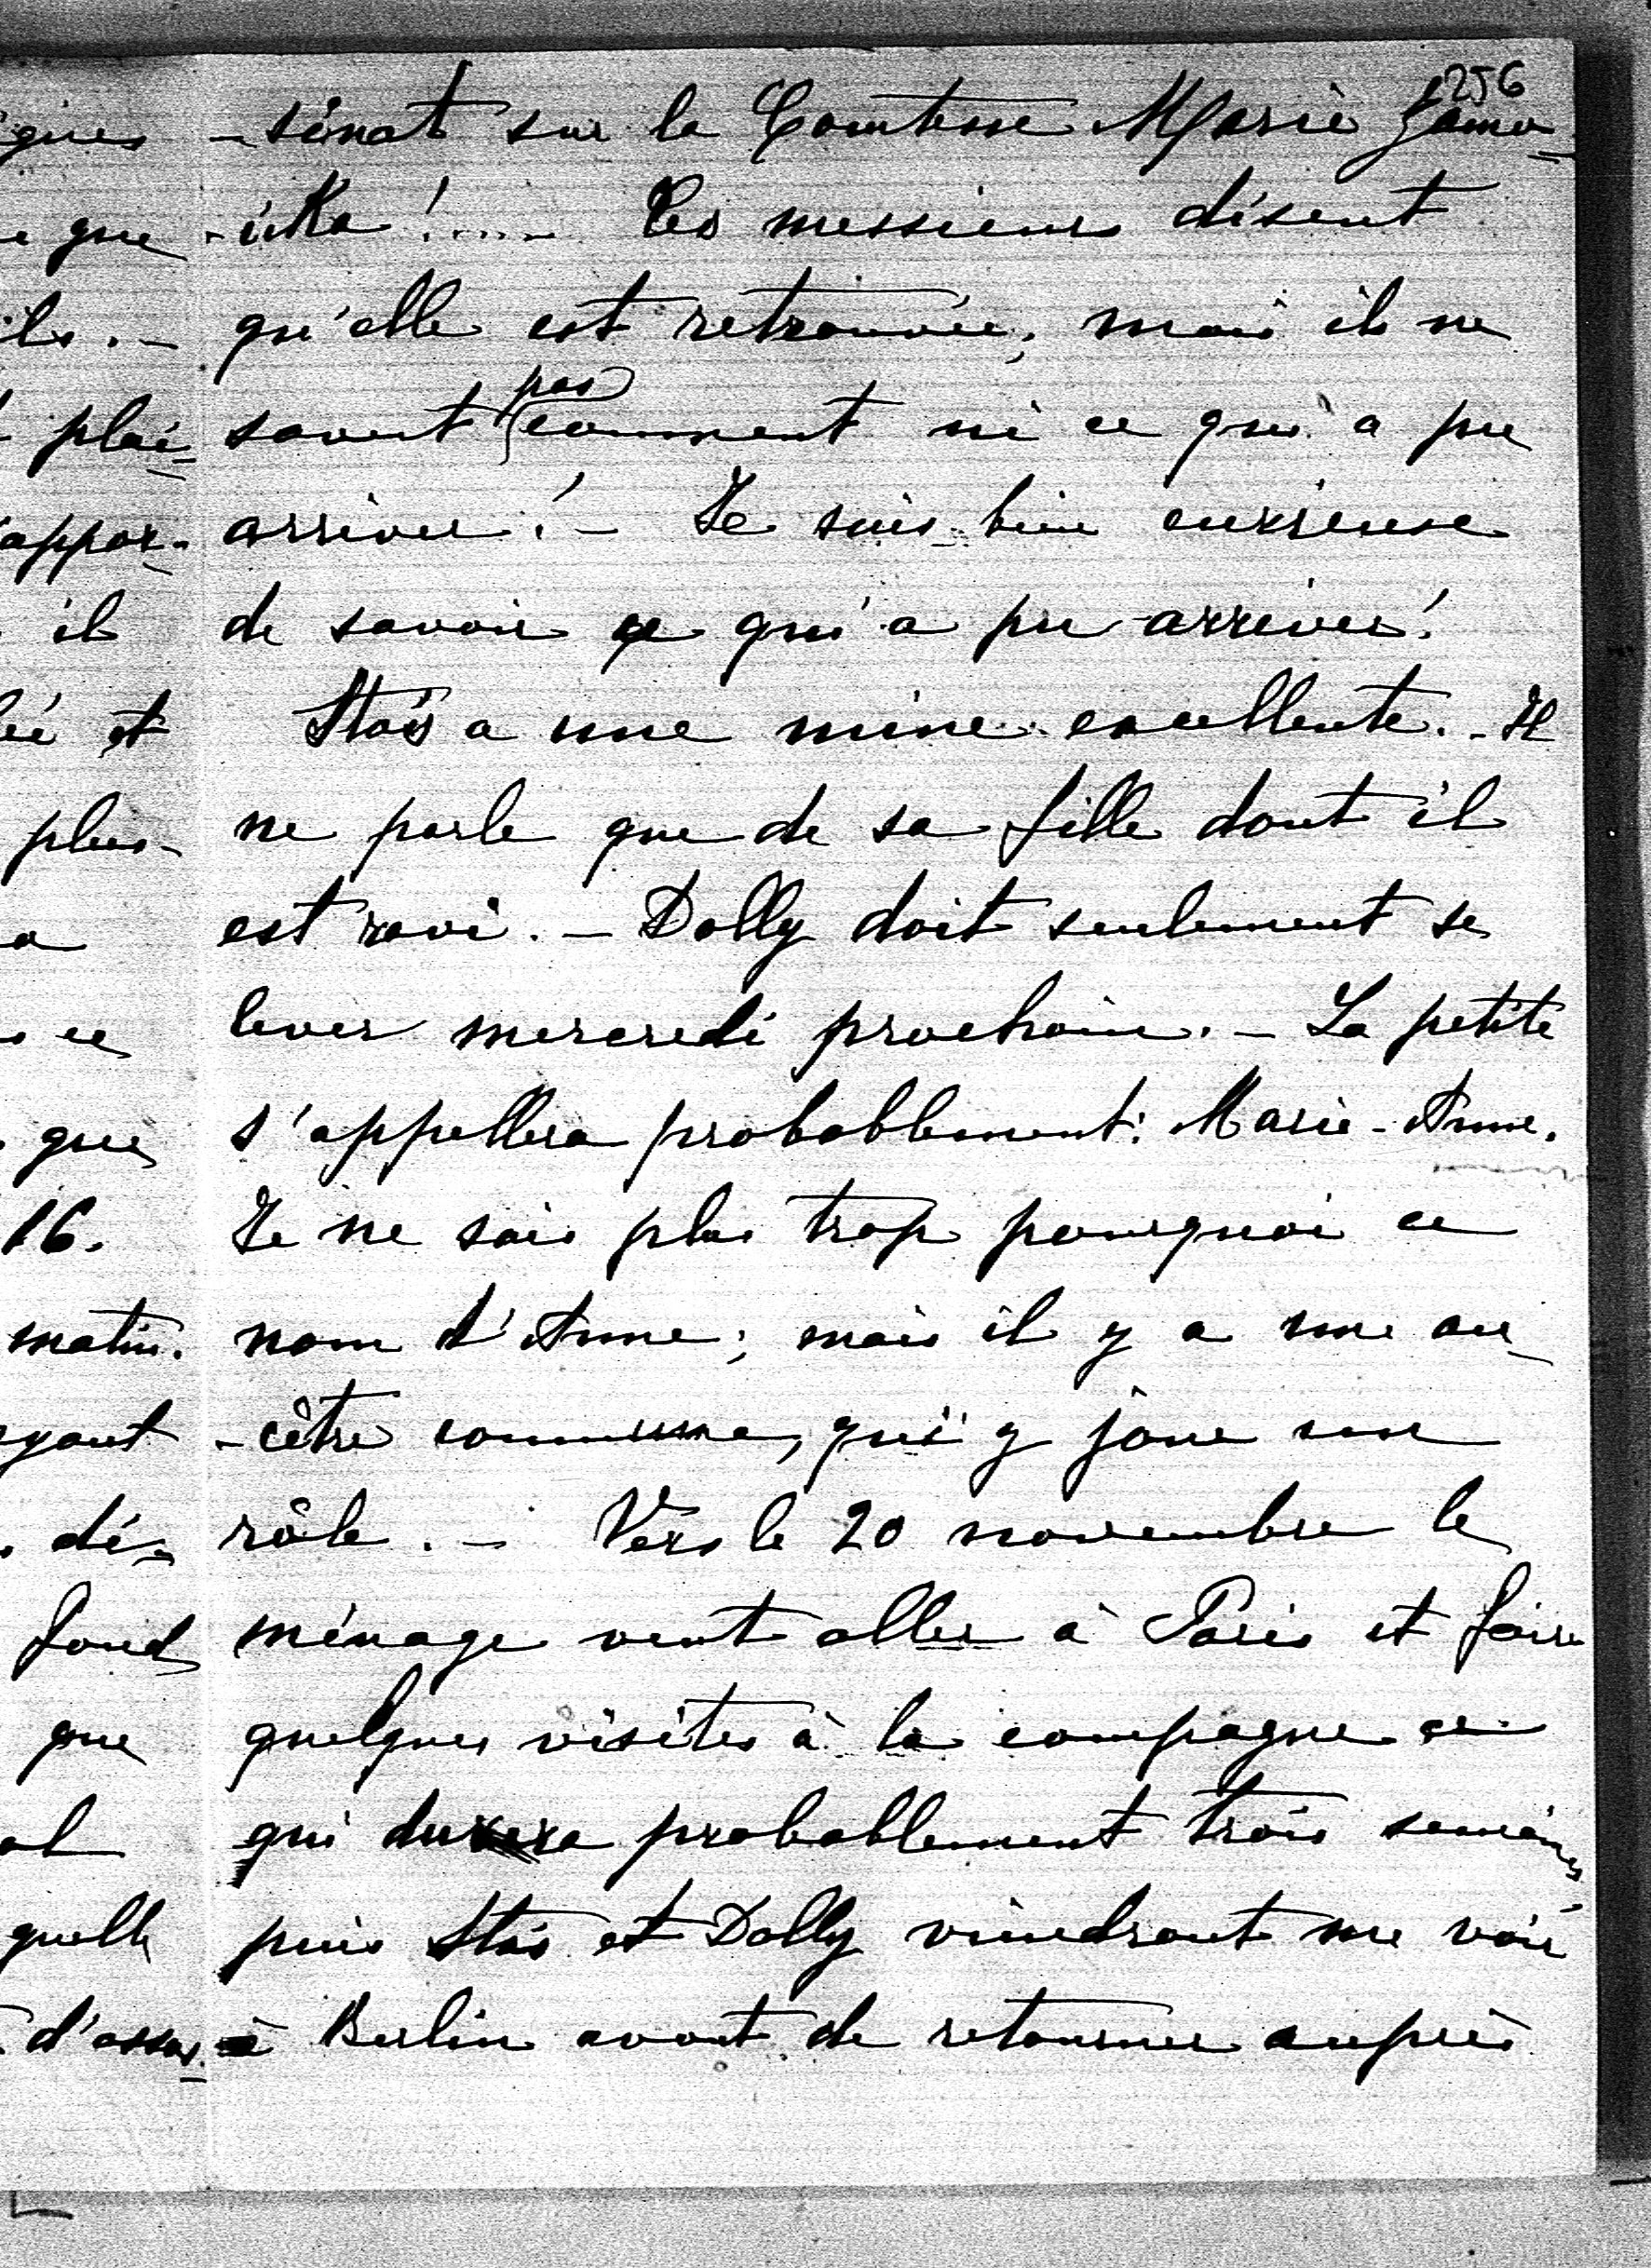 256
-sinat sur la Comtesse Marie Zamo-
-iska !..... Ces messieurs disent
qu'elle est retrouvée, mais ils ne
savent pas comment ni ce qui a pu
arriver ! - Je suis bien curieuse
de savoir ce qui a pu arriver !
Stas a une mine excellente. - Il
ne parle que de sa fille dont il
est ravi. - Dolly doit seulement se
lever mercredi prochain. - La petite
s'appellera probablement : Marie-Anne.
Je ne sais plus trop pourquoi ce
nom d'Anne ; mais il y a une an-
-cêtre commune, qui y joue un
rôle. - Vers le 20 novembre le
ménage veut aller à Paris et faire
quelques visites à la campagne ce
qui durera probablement trois semaines
puis Stas et Dolly viendront me voir
à Berlin avant de retourner auprès